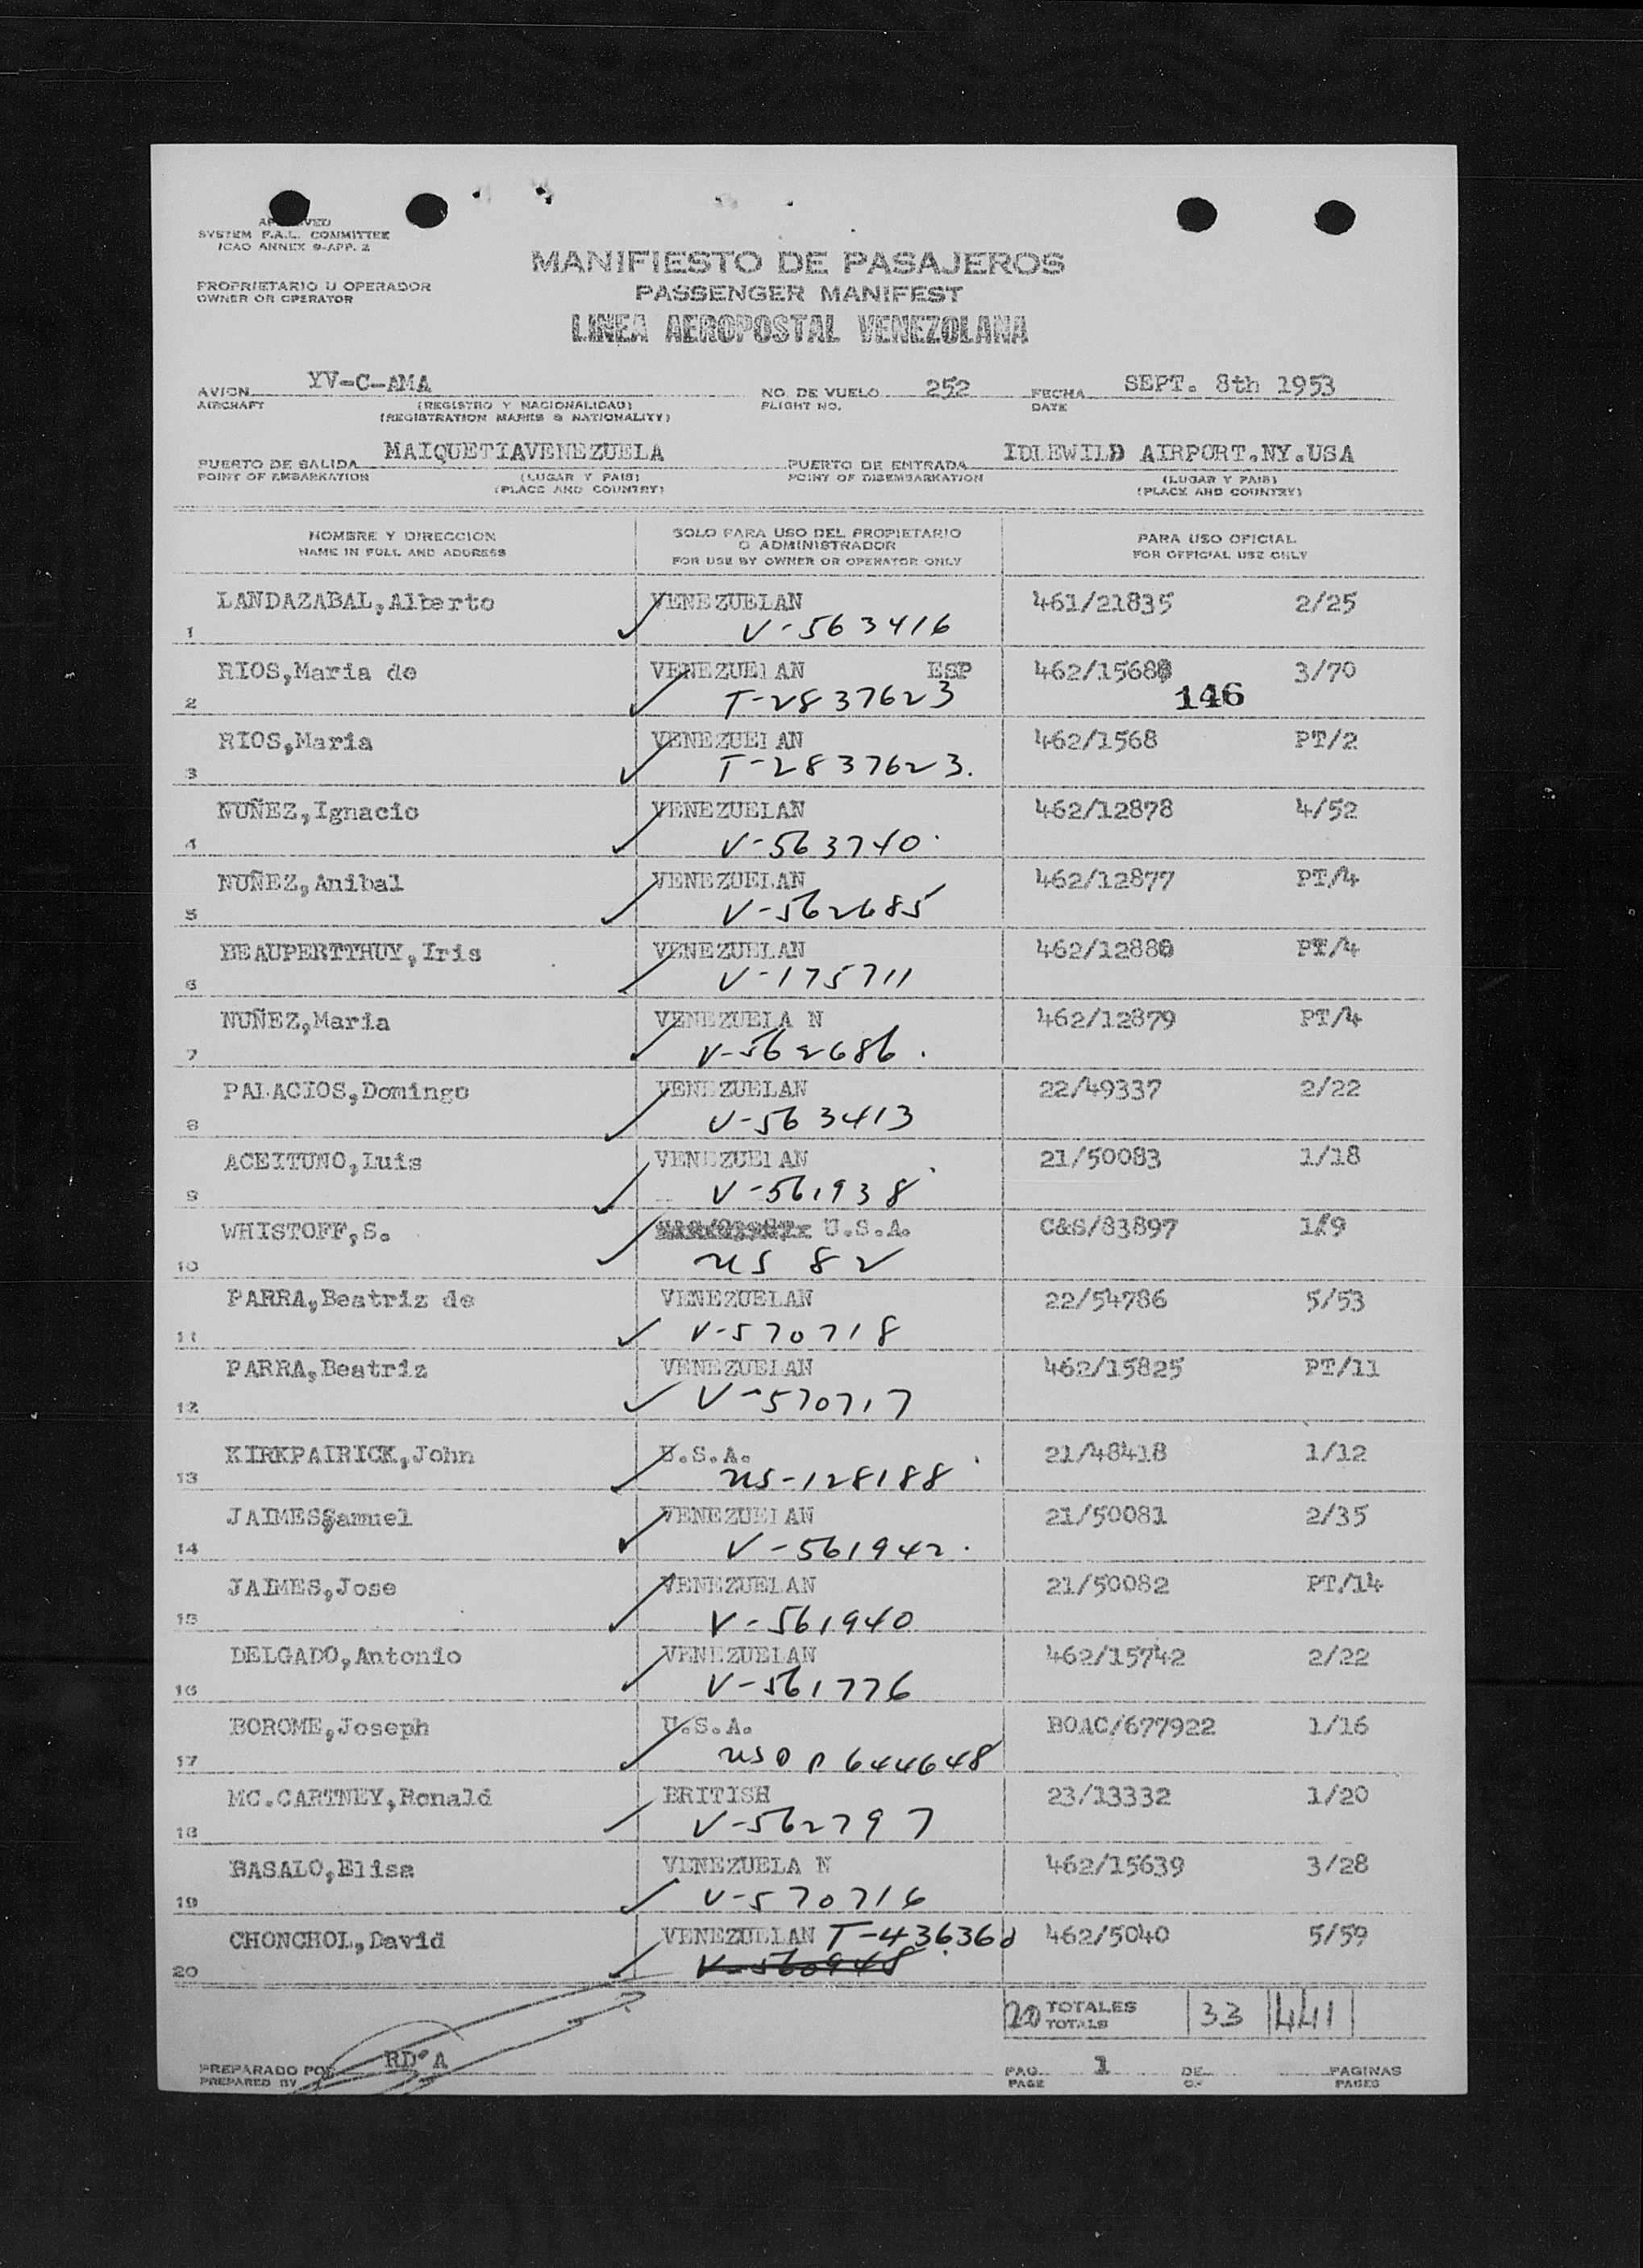 SYSTEM F.A.L. COMMITTEE
ICAO ANNEX 9-APP. 2
MANIFIESTO DE PASAJEROS
PROPRIETARIO U OPERADOR
OWNER OR OPERATOR
PASSENGER MANIFEST
LINEA AEROPOSTAL VENEZOLANA
AVION YV-C-AMA NO. DE VUELO 252 FECHA SEPT. 8th 1953
AIRCRAFT (REGISTRO Y NACIONALIDAD) FLIGHT NO. DATE
(REGISTRATION MARKS & NATIONALITY)
PUERTO DE SALIDA MAIQUETIAVENEZUELA PUERTO DE ENTRADA IDLEWILD AIRPORT.NY.USA
POINT OF EMBARKATION (LUGAR Y PAIS) POINT OF DISEMBARKATION (LUGAR Y PAIS)
(PLACE AND COUNTRY) (PLACE AND COUNTRY)
NOMBRE Y DIRECCION SOLO PARA USO DEL PROPIETARIO PARA USO OFICIAL
NAME IN FULL AND ADDRESS O ADMINISTRADOR FOR OFFICIAL USE ONLY
FOR USE BY OWNER OR OPERATOR ONLY
LANDAZABAL,Alberto VENEZUELAN 461/21835 2/25
1 ✓ V-563416
RIOS,Maria de VENEZUELAN ESP 462/15680 3/70
2 ✓ T-2837623 146
RIOS,Maria VENEZUELAN 462/1568 PT/2
3 ✓ T-2837623.
NUÑEZ,Ignacio VENEZUELAN 462/12878 4/52
4 ✓ V-563740
NUÑEZ,Anibal VENEZUELAN 462/12877 PT/4
5 ✓ V-562685
BEAUPERTTHUY,Iris VENEZUELAN 462/12880 PT/4
6 ✓ V-175711
NUÑEZ,Maria VENEZUELA N 462/12879 PT/4
7 ✓ V-562686.
PALACIOS,Domingo VENEZUELAN 22/49337 2/22
8 ✓ V-563413
ACEITUNO,Luis VENEZUELAN 21/50083 1/18
9 ✓ V-561938
WHISTOFF,S. U.S.A. C&S/83897 1/9
10 ✓ US 82
PARRA,Beatriz de VENEZUELAN 22/54786 5/53
11 ✓ V-570718
PARRA,Beatriz VENEZUELAN 462/15825 PT/11
12 ✓ V-570717
KIRKPAIRICK,John U.S.A. 21/48418 1/12
13 ✓ US-128188
JAIMES,Samuel VENEZUELAN 21/50081 2/35
14 ✓ V-561942.
JAIMES,Jose VENEZUELAN 21/50082 PT/14
15 ✓ V-561940
DELGADO,Antonio VENEZUELAN 462/15742 2/22
16 ✓ V-561776
BOROME,Joseph U.S.A. BOAC/677922 1/16
17 ✓ 644648
MC.CARTNEY,Ronald BRITISH 23/13332 1/20
18 ✓ V-562797
BASALO,Elisa VENEZUELA N 462/15639 3/28
19 ✓ V-570716
CHONCHOL,David VENEZUELAN 462/5040 5/59
20 ✓ V-560948
20 TOTALES 33 441
TOTALS
PREPARADO POR RD'A PAG. 1 DE PAGINAS
PREPARED BY PAGE OF PAGES